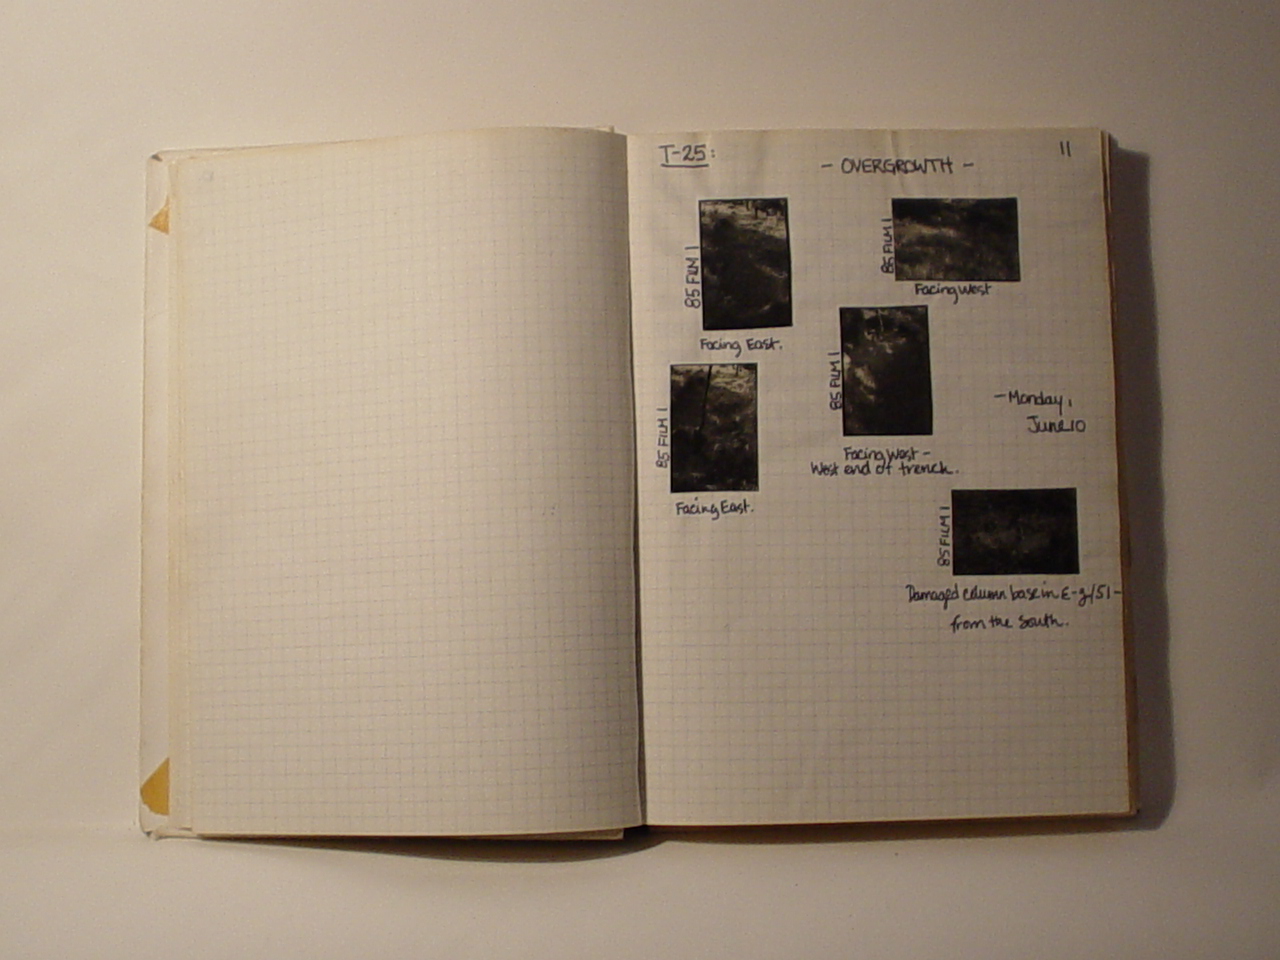 T-25:
11
- OVERGROWTH -
85 FILM 1
Facing East.
85 FILM 1
Facing West
85 FILM 1
Facing West -
West end of trench.
85 FILM 1
Facing East.
- Monday,
June 10
85 FILM 1
Damaged column base in E-g/51 -
from the South.